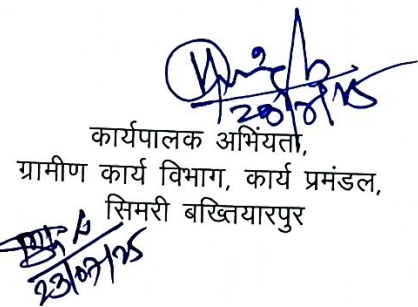 कार्यपालक अभिंयता,
ग्रामीण कार्य विभाग, कार्य प्रमंडल,
सिमरी बख्तियारपुर
23/07/25